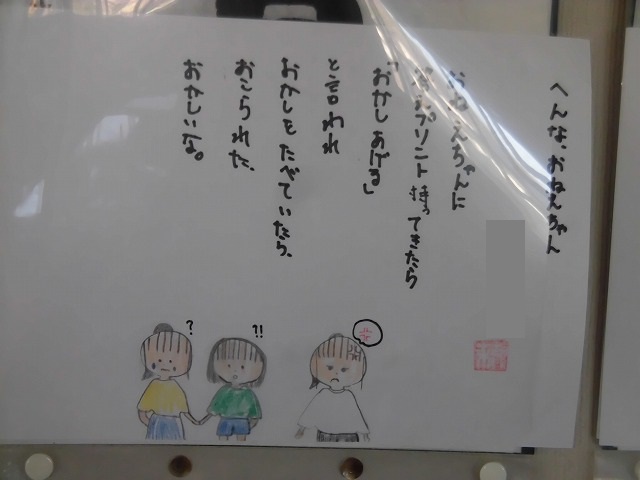 へんな、おねえちゃん
おねえちゃんに
プリント持ってきたら
「おかしあげる」
と言われ
おかしをたべていたら、
おこられた、
おかしいな。
?
!!